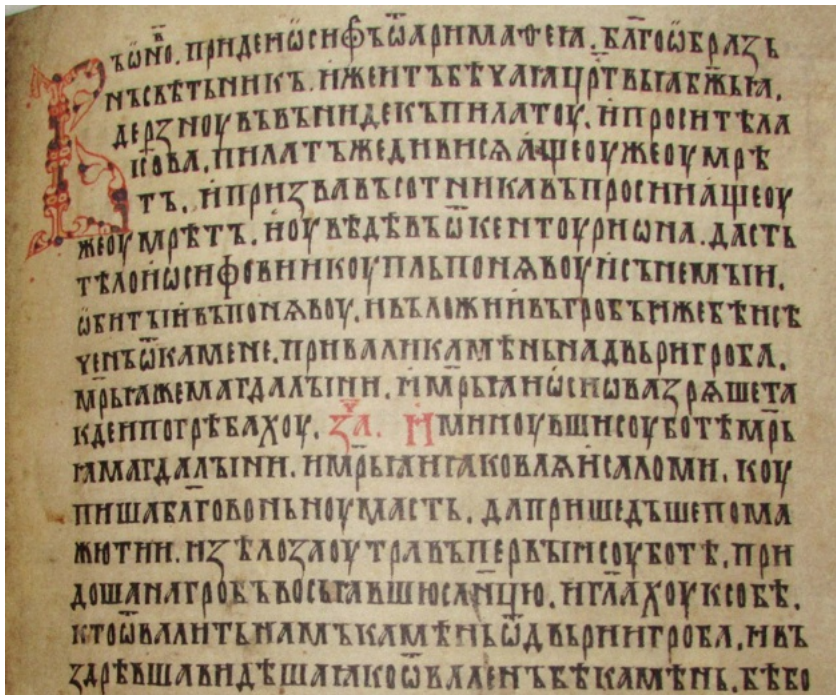 Въѡ҆но̑. приденѡсифъѿаримаѳеꙗ. бл҃гоѡбразъ
нъсвѣтьникъ. и҆жеитъбѣчаꙗцр҃твыꙗбж҃ьꙗ.
дерзноувъвънидекъпилатоу. и҆проситѣла
і҃сова. пилатъжедивисѧа҆щеоужеоумрѣ
тъ. и҆призвавъсотникавъпросииа҆щеоу
жеоумрѣтъ. и҆оувѣдѣвъѿкентоуриѡна. дасть
тѣлои҆ѡсифовиикоупльпонѧвоуи҆сънемъіи.
ѡ҆битъіи҆въпонѧвоу. ивъложии҆въгробъижебѣисѣ
ченъѿкамене. приваликамѣньнадвьригроба.
мр҃ьꙗжемагдалъіни. и҆мр҃ьꙗиѡсиѡвазрѧшета
кдеипогрѣбахоу. з҃ча. И҆миноувшисоуботѣмр҃ь
ꙗмагдалъіни. имр҃ьꙗиꙗковлѧи҆саломи. коу
пишабл҃говоньноумасть. дапришедъшепома
жютии. изѣлозаоутравъпервъіисоуботѣ, при
дошанагробъвосьꙗвшюсл҃нцю. игл҃ахоуксобѣ.
ктоѿвалитьнамъкамѣньѿдвьриигроба. ивъ
здрѣвшавидѣшаꙗкоѿваленъбѣкамѣнь. бѣбо